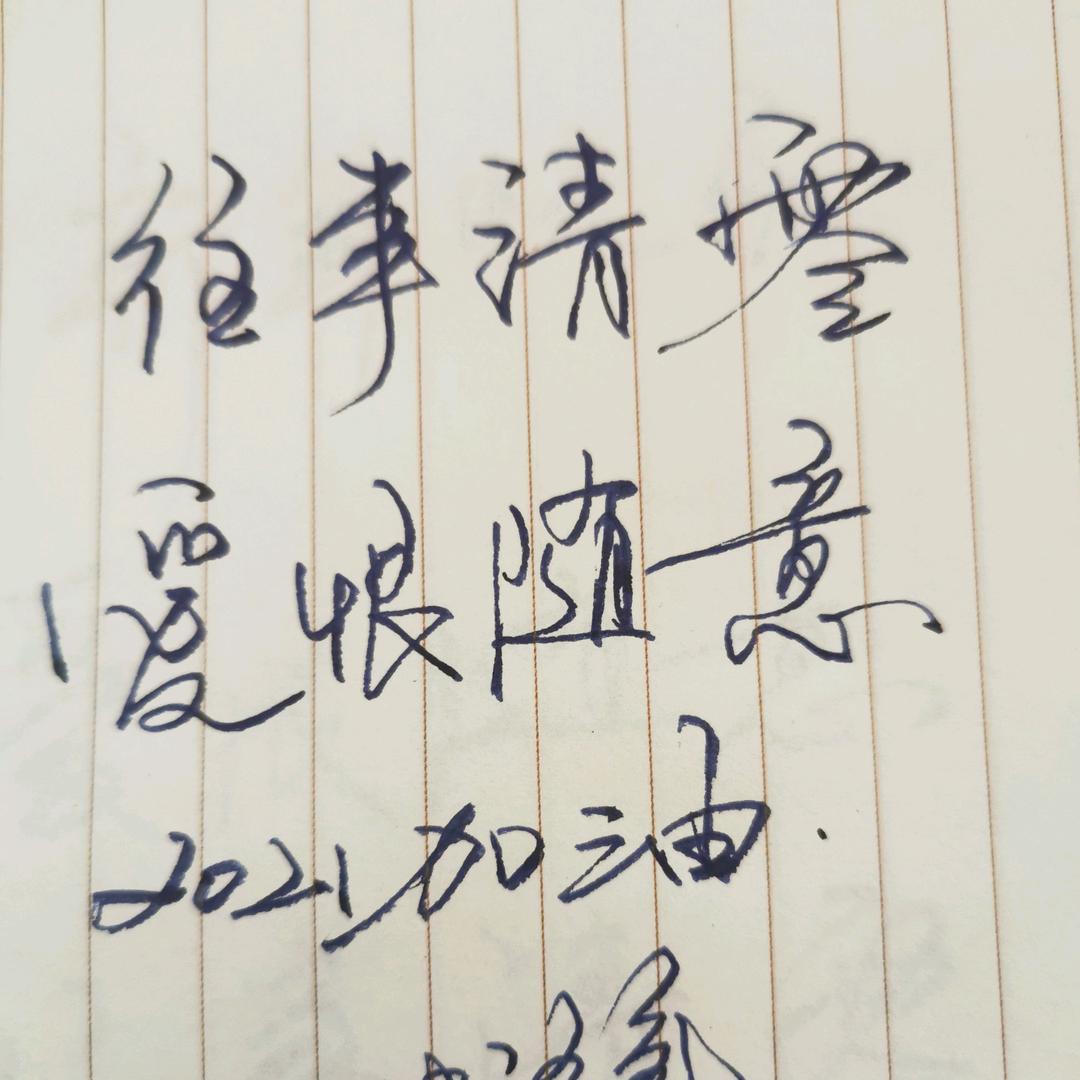 往事清零
爱恨随意
2021加油.